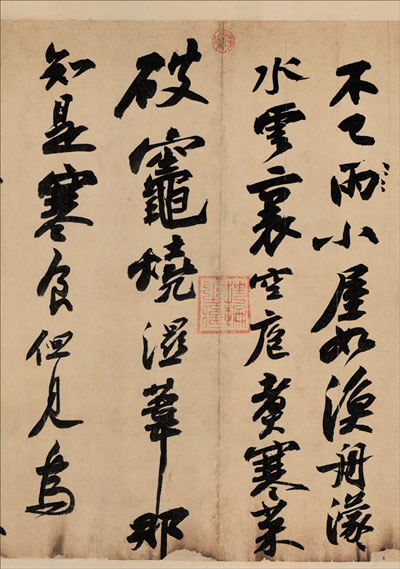 不已雨小屋如漁舟濛々
水雲裏空庖煮寒菜
破竈燒濕葦那
知是寒食但見烏